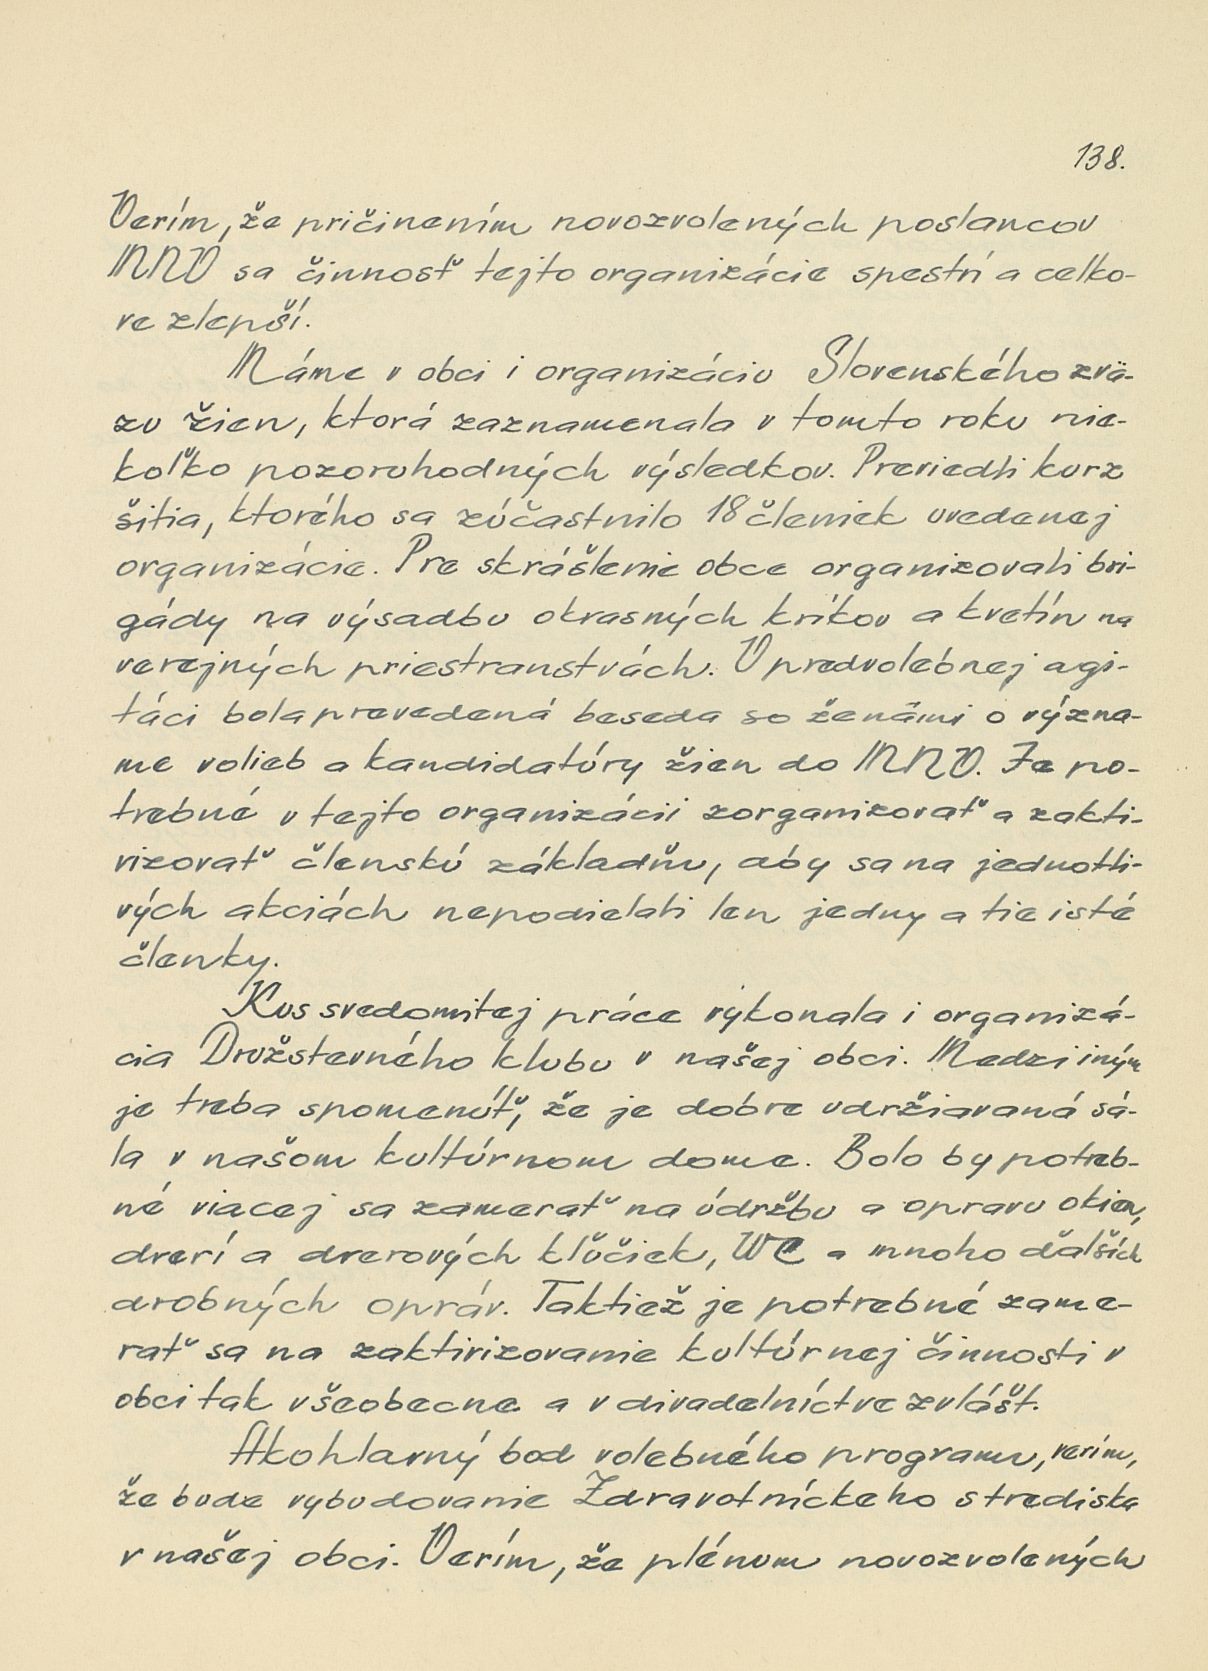 138.
Verím, že pričinením novozvolených poslancov
MNV sa činnosť tejto organizácie spestrí a celko-
ve zlepší.
Máme v obci i organizáciu Slovenského zvä-
zu žien, ktorá zaznamenala v tomto roku nie-
koľko pozoruhodných výsledkov. Previedli kurz
šitia, ktorého sa zúčastnilo 18 členiek uvedenej
organizácie. Pre skrášlenie obce organizovali bri-
gády na výsadbu okrasných kríkov a kvetín na
verejných priestranstvách. V predvolebnej agi-
táci bola prevedená beseda so ženámi o význa-
me volieb a kandidatúry žien do MNV. Je po-
trebné v tejto organizácii zorganizovať a zakti-
vizovať členskú základňu, aby sa na jednotli-
vých akciách nepodielali len jedny a tie isté
členky.
Kus svedomitej práce výkonala i organizá-
cia Družstevného klubu v našej obci. Medzi iným
je treba spomenúť, že je dobre udržiavaná sá-
la v našom kultúrnom dome. Bolo by potreb-
né viacej sa zamerať na údržbu a opravu okien,
dverí a dverových kľučiek, WC a mnoho ďalších
drobných opráv. Taktiež je potrebné zame-
rať sa na zaktivizovanie kultúrnej činnosti v
obci tak všeobecne a v divadelníctve zvlášť.
Ako hlavný bod volebného programu, verím,
že bude vybudovanie Zdravotníckeho strediska
v našej obci. Verím, že plénum novozvolených